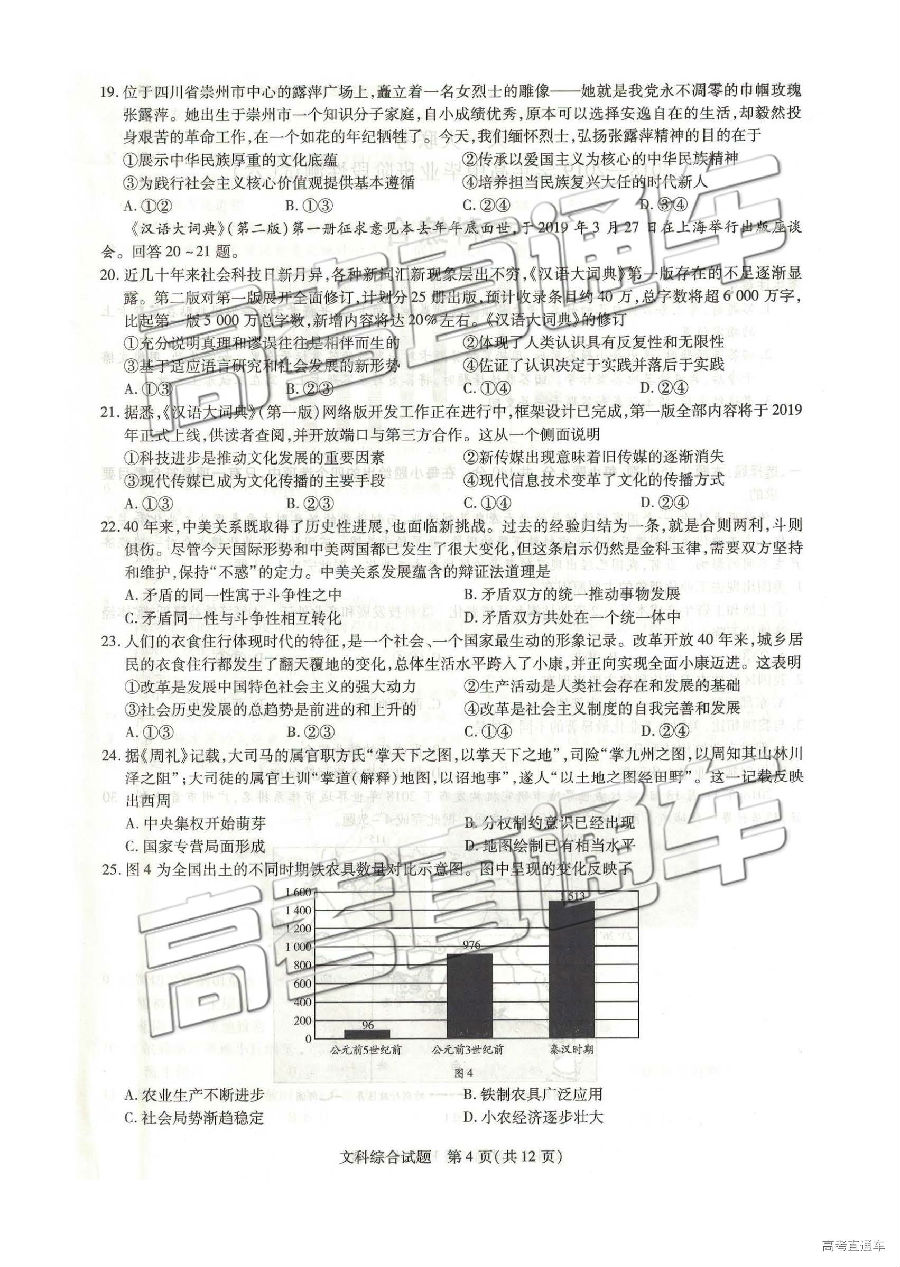 19. 位于四川省崇州市中心的露萍广场上,矗立着一名女烈士的雕像——她就是我党永不凋零的巾帼玫瑰
张露萍。她出生于崇州市一个知识分子家庭,自小成绩优秀,原本可以选择安逸自在的生活,却毅然投
身艰苦的革命工作,在一个如花的年纪牺牲了。今天,我们缅怀烈士,弘扬张露萍精神的目的在于
①展示中华民族厚重的文化底蕴 ②传承以爱国主义为核心的中华民族精神
③为践行社会主义核心价值观提供基本遵循 ④培养担当民族复兴大任的时代新人
A. ①② B. ①③ C. ②④ D. ③④
《汉语大词典》(第二版)第一册征求意见本去年年底面世,于 2019 年 3 月 27 日在上海举行出版座谈
会。回答 20~21 题。
20. 近几十年来社会科技日新月异,各种新词汇新现象层出不穷,《汉语大词典》第一版存在的不足逐渐显
露。第二版对第一版展开全面修订,计划分 25 册出版,预计收录条目约 40 万,总字数将超 6 000 万字,
比起第一版 5 000 万总字数,新增内容将达 20%左右。《汉语大词典》的修订
①充分说明真理和谬误往往是相伴而生的 ②体现了人类认识具有反复性和无限性
③基于适应语言研究和社会发展的新形势 ④佐证了认识决定于实践并落后于实践
A. ①③ B. ②③ C. ①④ D. ②④
21. 据悉,《汉语大词典》(第一版)网络版开发工作正在进行中,框架设计已完成,第一版全部内容将于 2019
年正式上线,供读者查阅,并开放端口与第三方合作。这从一个侧面说明
①科技进步是推动文化发展的重要因素 ②新传媒出现意味着旧传媒的逐渐消失
③现代传媒已成为文化传播的主要手段 ④现代信息技术变革了文化的传播方式
A. ①③ B. ②③ C. ①④ D. ②④
22. 40 年来,中美关系既取得了历史性进展,也面临新挑战。过去的经验归结为一条,就是合则两利,斗则
俱伤。尽管今天国际形势和中美两国都已发生了很大变化,但这条启示仍然是金科玉律,需要双方坚持
和维护,保持“不惑”的定力。中美关系发展蕴含的辩证法道理是
A. 矛盾的同一性寓于斗争性之中 B. 矛盾双方的统一推动事物发展
C. 矛盾同一性与斗争性相互转化 D. 矛盾双方共处在一个统一体中
23. 人们的衣食住行体现时代的特征,是一个社会、一个国家最生动的形象记录。改革开放 40 年来,城乡居
民的衣食住行都发生了翻天覆地的变化,总体生活水平跨入了小康,并正向实现全面小康迈进。这表明
①改革是发展中国特色社会主义的强大动力 ②生产活动是人类社会存在和发展的基础
③社会历史发展的总趋势是前进的和上升的 ④改革是社会主义制度的自我完善和发展
A. ①③ B. ②③ C. ①④ D. ②④
24. 据《周礼》记载,大司马的属官职方氏“掌天下之图,以掌天下之地”,司险“掌九州之图,以周知其山林川
泽之阻”;大司徒的属官土训“掌道(解释)地图,以诏地事”,遂人“以土地之图经田野”。这一记载反映
出西周
A. 中央集权开始萌芽 B. 分权制约意识已经出现
C. 国家专营局面形成 D. 地图绘制已有相当水平
25. 图 4 为全国出土的不同时期铁农具数量对比示意图。图中呈现的变化反映了
1 600
1 400
1 200
1 000
800
600
400
200
0
96
976
1 513
公元前5世纪前 公元前3世纪前 秦汉时期
图 4
A. 农业生产不断进步 B. 铁制农具广泛应用
C. 社会局势渐趋稳定 D. 小农经济逐步壮大
文科综合试题 第 4 页(共 12 页)
高考直通车
高考直通车
高考直通车